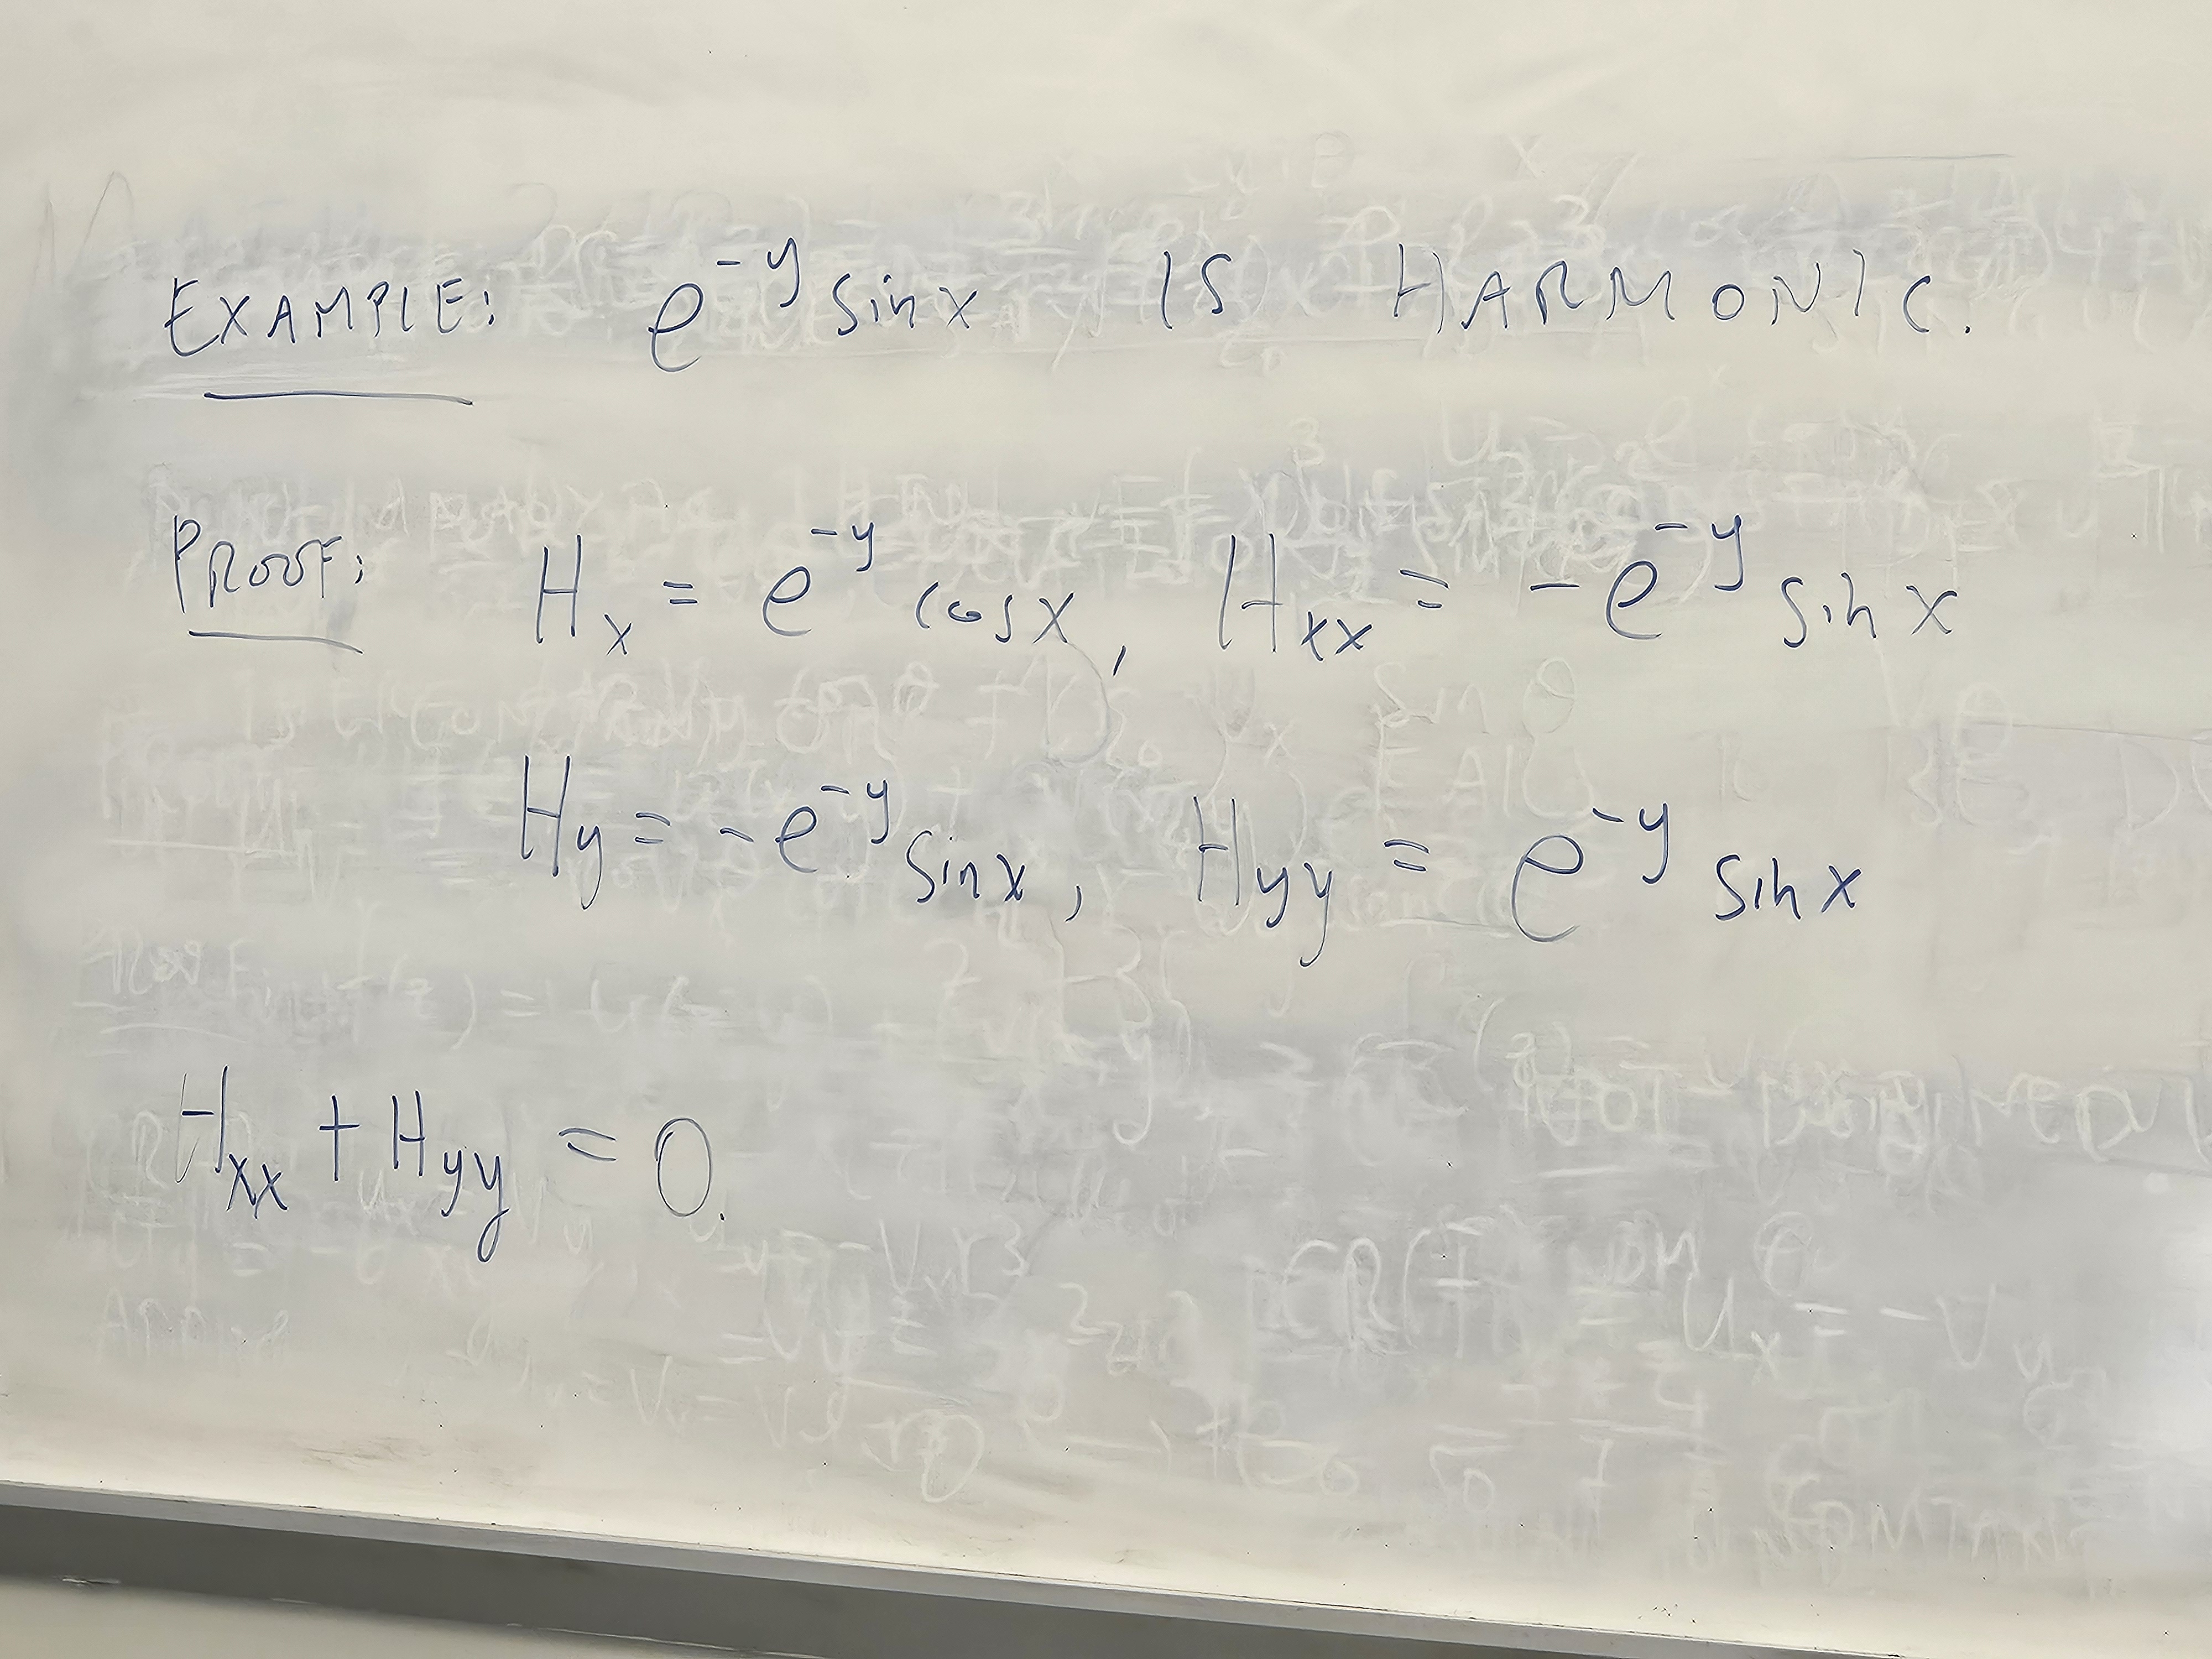 EXAMPLE: e^{-y} sin x IS HARMONIC.
PROOF: H_x = e^{-y} cos x, H_{xx} = -e^{-y} sin x
H_y = -e^{-y} sin x, H_{yy} = e^{-y} sin x
H_{xx} + H_{yy} = 0.